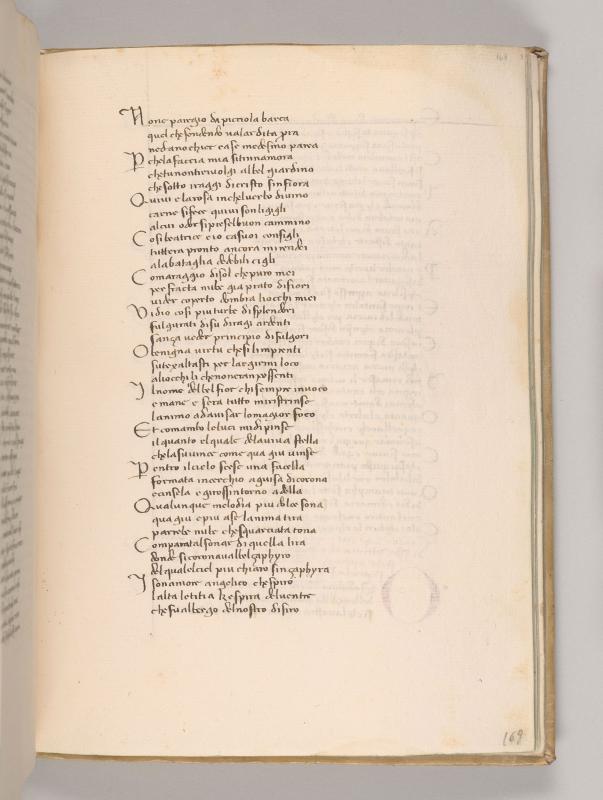 None paregio da picciola barca
quel che fendendo va lardita pra
ned anochier ca se medesmo parca
Perche la faccia mia si tinnamora
che tu non ti rivolgi al bel giardino
che sotto iraggi di cristo sinfiora
Quivi e la rosa in chel verbo divino
carne si fece quivi son li gigli
al cui odor si prese lbuon cammino
Cosi beatrice e io ca suoi consigli
tuttera pronto ancora mi rendei
a la bataglia de debili cigli
Coma raggio di sol che puro mei
per fracta nube gia prato di fiori
vider coperto dombra li occhi miei
Vidio cosi piu turbe di splendori
fulgurati di su di ragi ardenti
sança veder principio di fulgori
O benigna virtu che si limprenti
su texaltasti per largirmi loco
a li occhi li che non eran possenti
Il nome del bel fior chi sempre invoco
e mane e sera tutto mi ristrinse
lanimo ad avisar lo magior foco
Et comambo le luci mi dipinse
il quanto el quale de la viva stella
che la su vince come qua giu vinse
Pentro il cielo scese una facella
formata in cerchio a guisa di corona
e cinsela e girossi intorno a della
Qualunque melodia piu dolce sona
qua giu e piu a se lanima tira
parrebe nube che squarciata tona
Comparata al sonar di quella lira
donde si coronava l bel çaphyro
del quale l ciel piu chiaro sinçaphyra
I sono amore angelico che spiro
lalta letitia ke spira del ventre
che fu albergo del nostro disiro
169